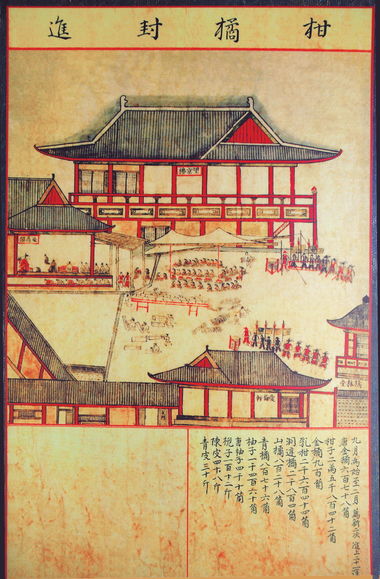 柑橘封進
望京樓
愛梅軒
九月為始至二月薦新及進上二十一運
唐金橘六百七十八箇
柑子二萬五千八百四十二箇
金橘九百箇
乳柑二千六百四十四箇
洞庭橘二千八百四箇
山橘八百二十八箇
青橘八百七十六箇
柚子千四百六十箇
唐柚子四千十箇
梔子一百十二斤
陳皮四十八斤
青皮三十斤